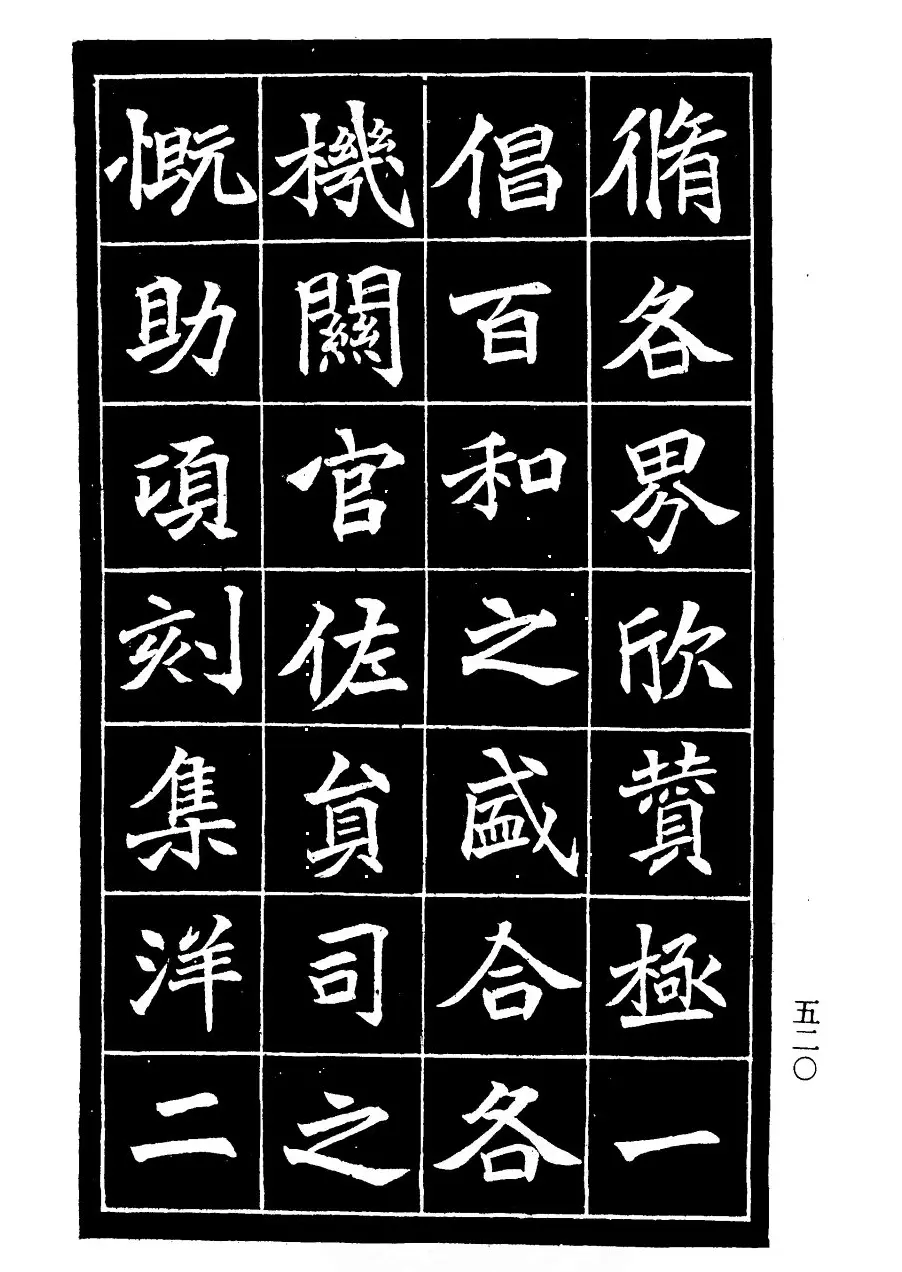 脩各界欣贊極一
倡百和之盛合各
機關官佐員司之
慨助頃刻集洋二
五二〇